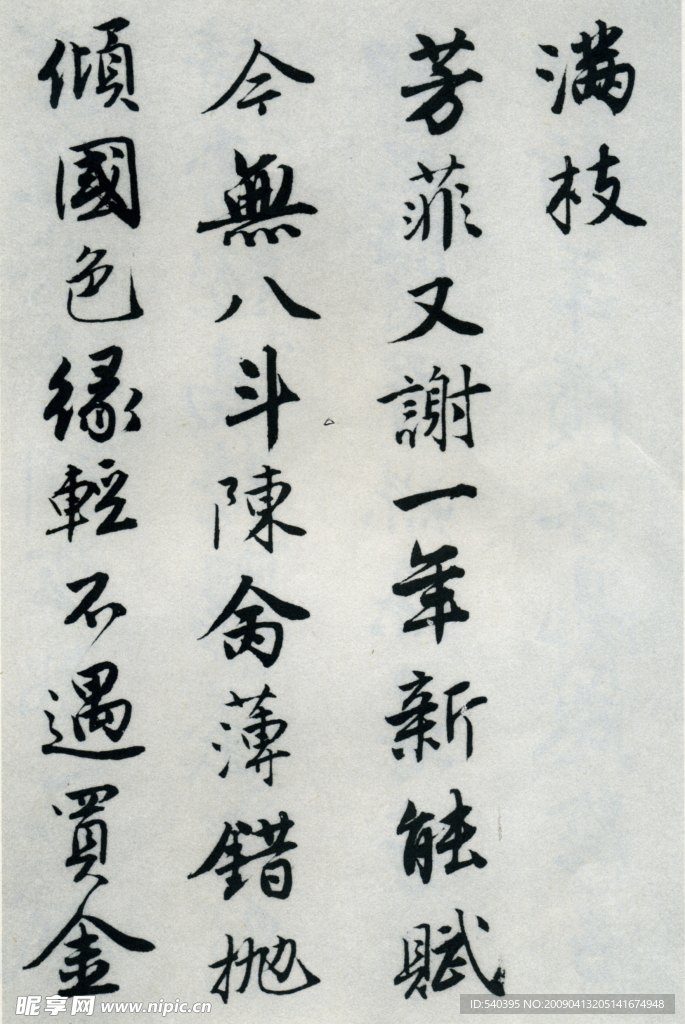 滿枝
芳菲又謝一年新能賦
今無八斗陳命薄錯拋
傾國色緣輕不遇買金
昵享网 www.nipic.cn
ID:540395 NO:20090413205141674948